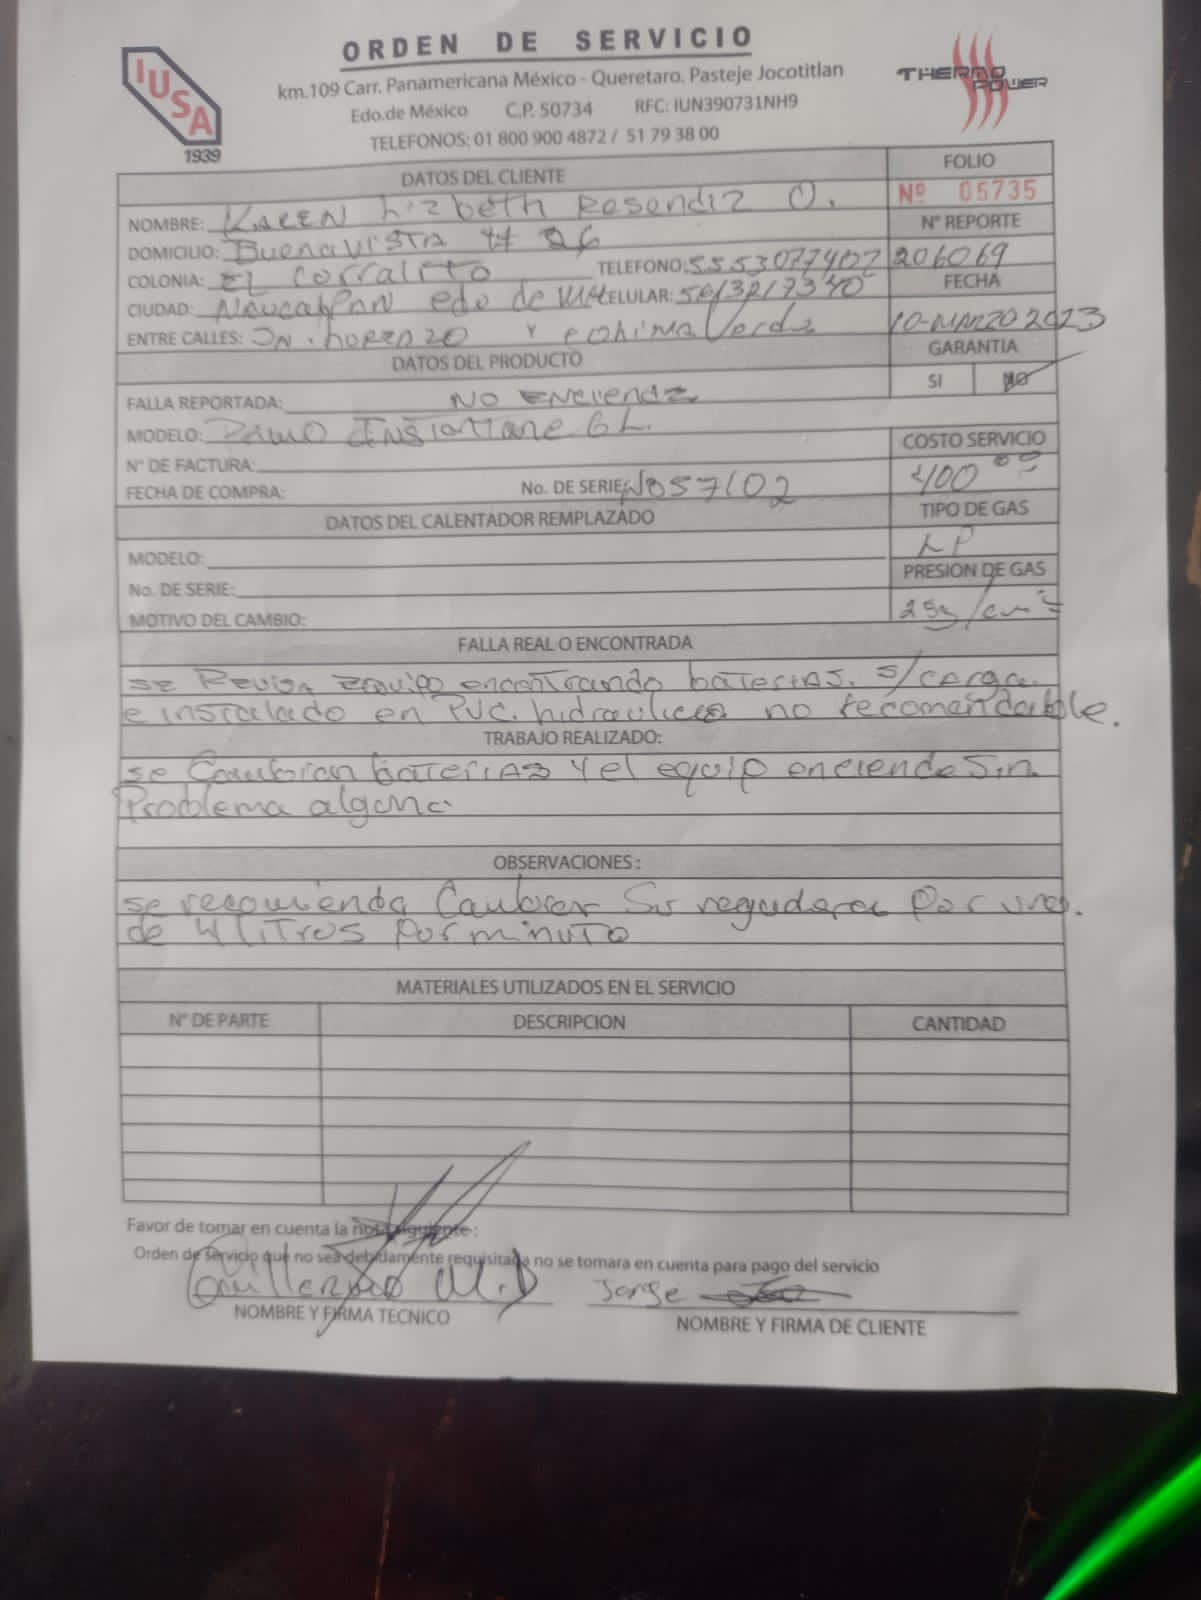 ORDEN DE SERVICIO
IUSA
1939
THERMO POWER
km.109 Carr. Panamericana México - Queretaro. Pasteje Jocotitlan
Edo.de México C.P. 50734 RFC: IUN390731NH9
TELEFONOS: 01 800 900 4872 / 51 79 38 00
DATOS DEL CLIENTE
FOLIO
Nº 05735
NOMBRE: KAREN Lizbeth Resendiz O.
Nº REPORTE
DOMICILIO: BuenaVISTA # 26
206069
COLONIA: EL Corralito TELEFONO: 5553077402
FECHA
CIUDAD: Naucalpan edo de CELULAR: 5613217340
10-MARZO 2023
ENTRE CALLES: Y
GARANTIA
DATOS DEL PRODUCTO
SI NO
FALLA REPORTADA: NO Enciende
MODELO: INSTANTANE 6L.
COSTO SERVICIO
400 00
N° DE FACTURA:
FECHA DE COMPRA: No. DE SERIE: W057102
TIPO DE GAS
LP
DATOS DEL CALENTADOR REMPLAZADO
MODELO:
PRESION DE GAS
No. DE SERIE:
MOTIVO DEL CAMBIO:
/cm²
FALLA REAL O ENCONTRADA
se Revisa equipo encontrando baterias. s/carga.
e instalado en PVC. hidraulico no recomendable.
TRABAJO REALIZADO:
se Cambian baterias y el equip enciende Sin.
Problema alguno.
OBSERVACIONES:
se recomienda Cambiar Su regadera Por una.
de 4 litros por minuto
MATERIALES UTILIZADOS EN EL SERVICIO
N° DE PARTE DESCRIPCION CANTIDAD
Favor de tomar en cuenta la nota siguiente:
Orden de servicio que no sea debidamente requisitada no se tomara en cuenta para pago del servicio
Guillermo M.D Jorge
NOMBRE Y FIRMA TECNICO
NOMBRE Y FIRMA DE CLIENTE